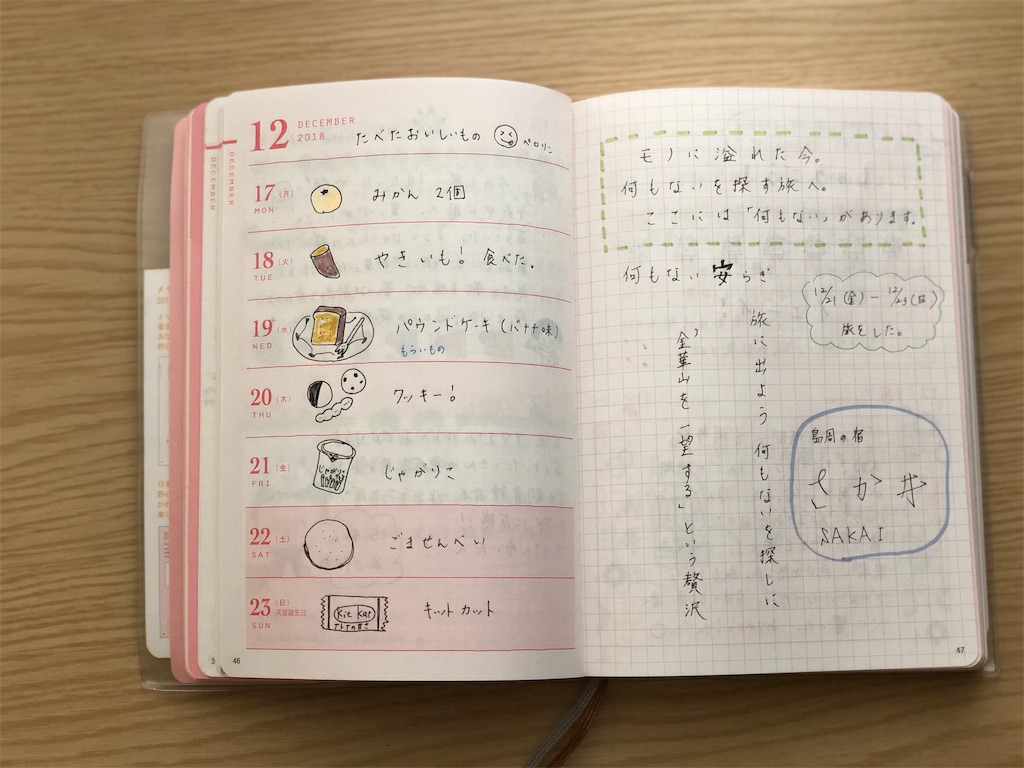 12 DECEMBER
2018
たべたおいしいもの ペロリン
17 (月)
MON
みかん 2個
18 (火)
TUE
やきいも! 食べた。
19 (水)
WED
パウンドケーキ(バナナ味)
もらいもの
20 (木)
THU
クッキー!
21 (金)
FRI
じゃがりこ
じゃがりこ
22 (土)
SAT
ごませんべい
23 (日)
天皇誕生日
SUN
Kit Kat
キットカット
3 46
DECEMBER
DECEMBER
モノに溢れた今。
何もないを探す旅へ。
ここには「何もない」があります。
何もない安らぎ
12/21(金)-12/23(日)
旅をした。
旅に出よう 何もないを探しに
「金華山を一望する」という贅沢
島周の宿
さか井
SAKAI
47